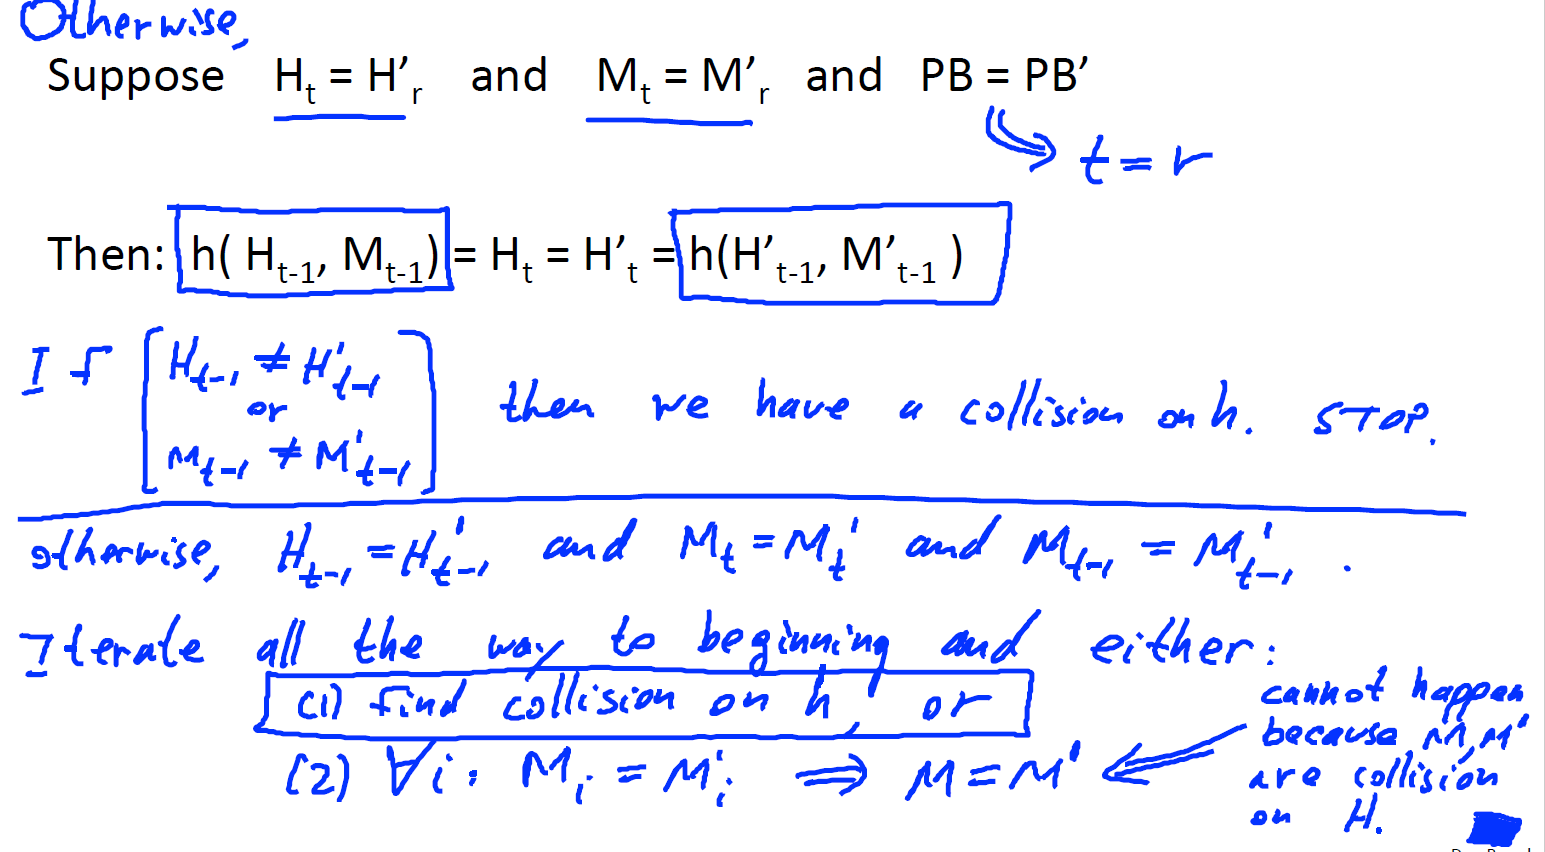 Otherwise,
Suppose H_t = H'_r and M_t = M'_r and PB = PB'
⇒ t = r
Then: h( H_{t-1}, M_{t-1}) = H_t = H'_t = h(H'_{t-1}, M'_{t-1} )
If [ H_{t-1} ≠ H'_{t-1}
or
M_{t-1} ≠ M'_{t-1} ] then we have a collision on h. STOP.
otherwise, H_{t-1} = H'_{t-1} and M_t = M'_t and M_{t-1} = M'_{t-1} .
Iterate all the way to beginning and either:
(1) find collision on h, or
(2) ∀i: M_i = M'_i ⇒ M = M'
cannot happen
because M, M'
are collision
on H.